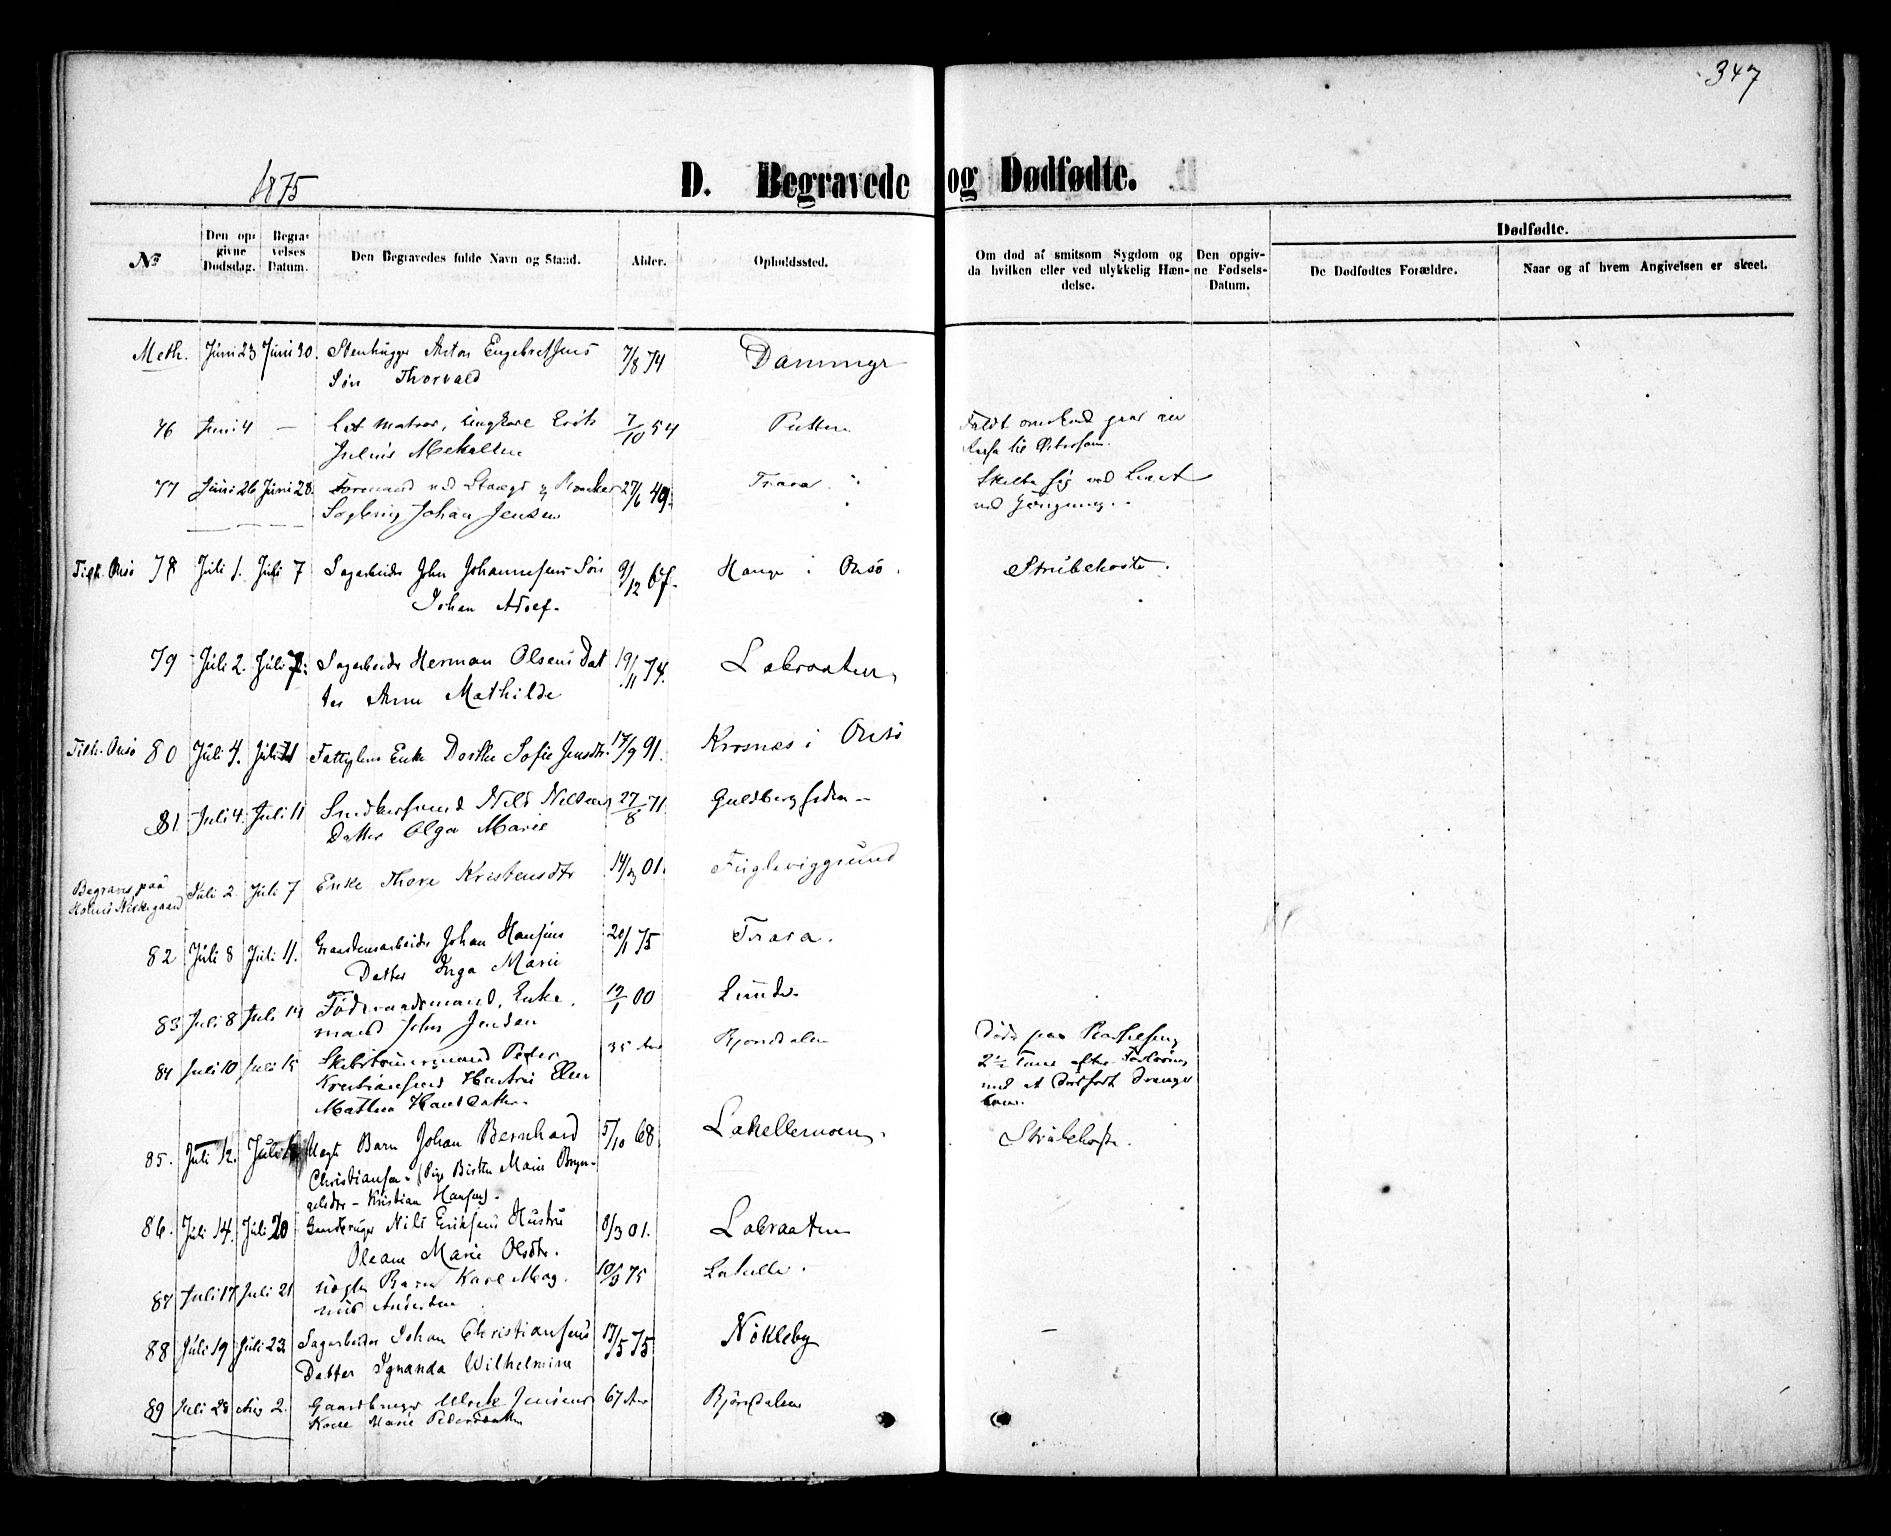 347
1875
D. Begravede og Dødfødte.
No
Den opgivne Dødsdag.
Begravelses Datum.
Den Begravedes fulde Navn og Stand.
Alder.
Opholdssted.
Om død af smitsom Sygdom og da hvilken eller ved ulykkelig Hændelse.
Den opgivne Fødsels-Datum.
Dødfødte.
De Dødfødtes Forældre.
Naar og af hvem Angivelsen er skeet.
Meth. Juni 23 Juni 30. Stenhugger Anton Engebretsens 7/8 74 Dammyr
Søn Thorvald
76 Juni 4 — Matros, Ungkarl 7/10 54
Julius
77 Juni 26 Juni 28. Formand ved 27/6 49. Trara
Johan Jensen
Tilh. Onsö 78 Juli 1. Juli 7 Sagarbeider John Johannesens Søn 9/12 67. Hauge i Onsö. Strubehoste.
Johan Adolf.
79 Juli 2. Juli 7. Sagarbeider Herman Olsens Dat 19/11 74. Labraaten
ter Anne Mathilde
Tilh. Onsö 80 Juli 4. Juli 11 Fattiglem Enke Dorthe Sofie Jensdtr. 17/9 91. Krosnæs i Onsö
81. Juli 4. Juli 11 Snedkersvend Nils Nilsens 27/8 71. Guldbergsiden
Datter Olga Marie
Begraves paa
Holms Kirkegaard Juli 2 Juli 7 Enke Thore Kristensdtr 14/3 01. Fugleviggrund
82 Juli 8 Juli 11. Johan Hansens 20/1 75 Trara.
Datter Inga Marie
83 Juli 8 Juli 14 Föderaadsmand, Enke 19/1 00 Lunde
mand John Jensen
84 Juli 10 Juli 15 Peder 35 Aar Bjørndalen Døde paa
Kristiansens Hustru Ellen 2½ Time efter
Mathea Hansdatter med et dødfødt Drenge
barn.
85. Juli 12. Juli Uegt Barn Johan Bernhard 5/10 68 Lahellemoen. Strubehoste.
Christiansen. (Pige Marie
Kristian Hansen).
86. Juli 14. Juli 20 Nils Eriksens Hustru 8/3 01. Labraaten
Oleane Marie Olsdtr.
87 Juli 17 Juli 21 uægte Barn Karl Mag 10/3 75 Lahelle.
nus Andersen
88 Juli 19 Juli 23. Sagarbeider Johan Christiansens 17/5 75 Nökleby
Datter Ignanda Wilhelmine
89 Juli 28 Aug 2. Gaardbruger Ulrik Jensens 67 Aar Bjørndalen
Kone Marie Pedersdatter